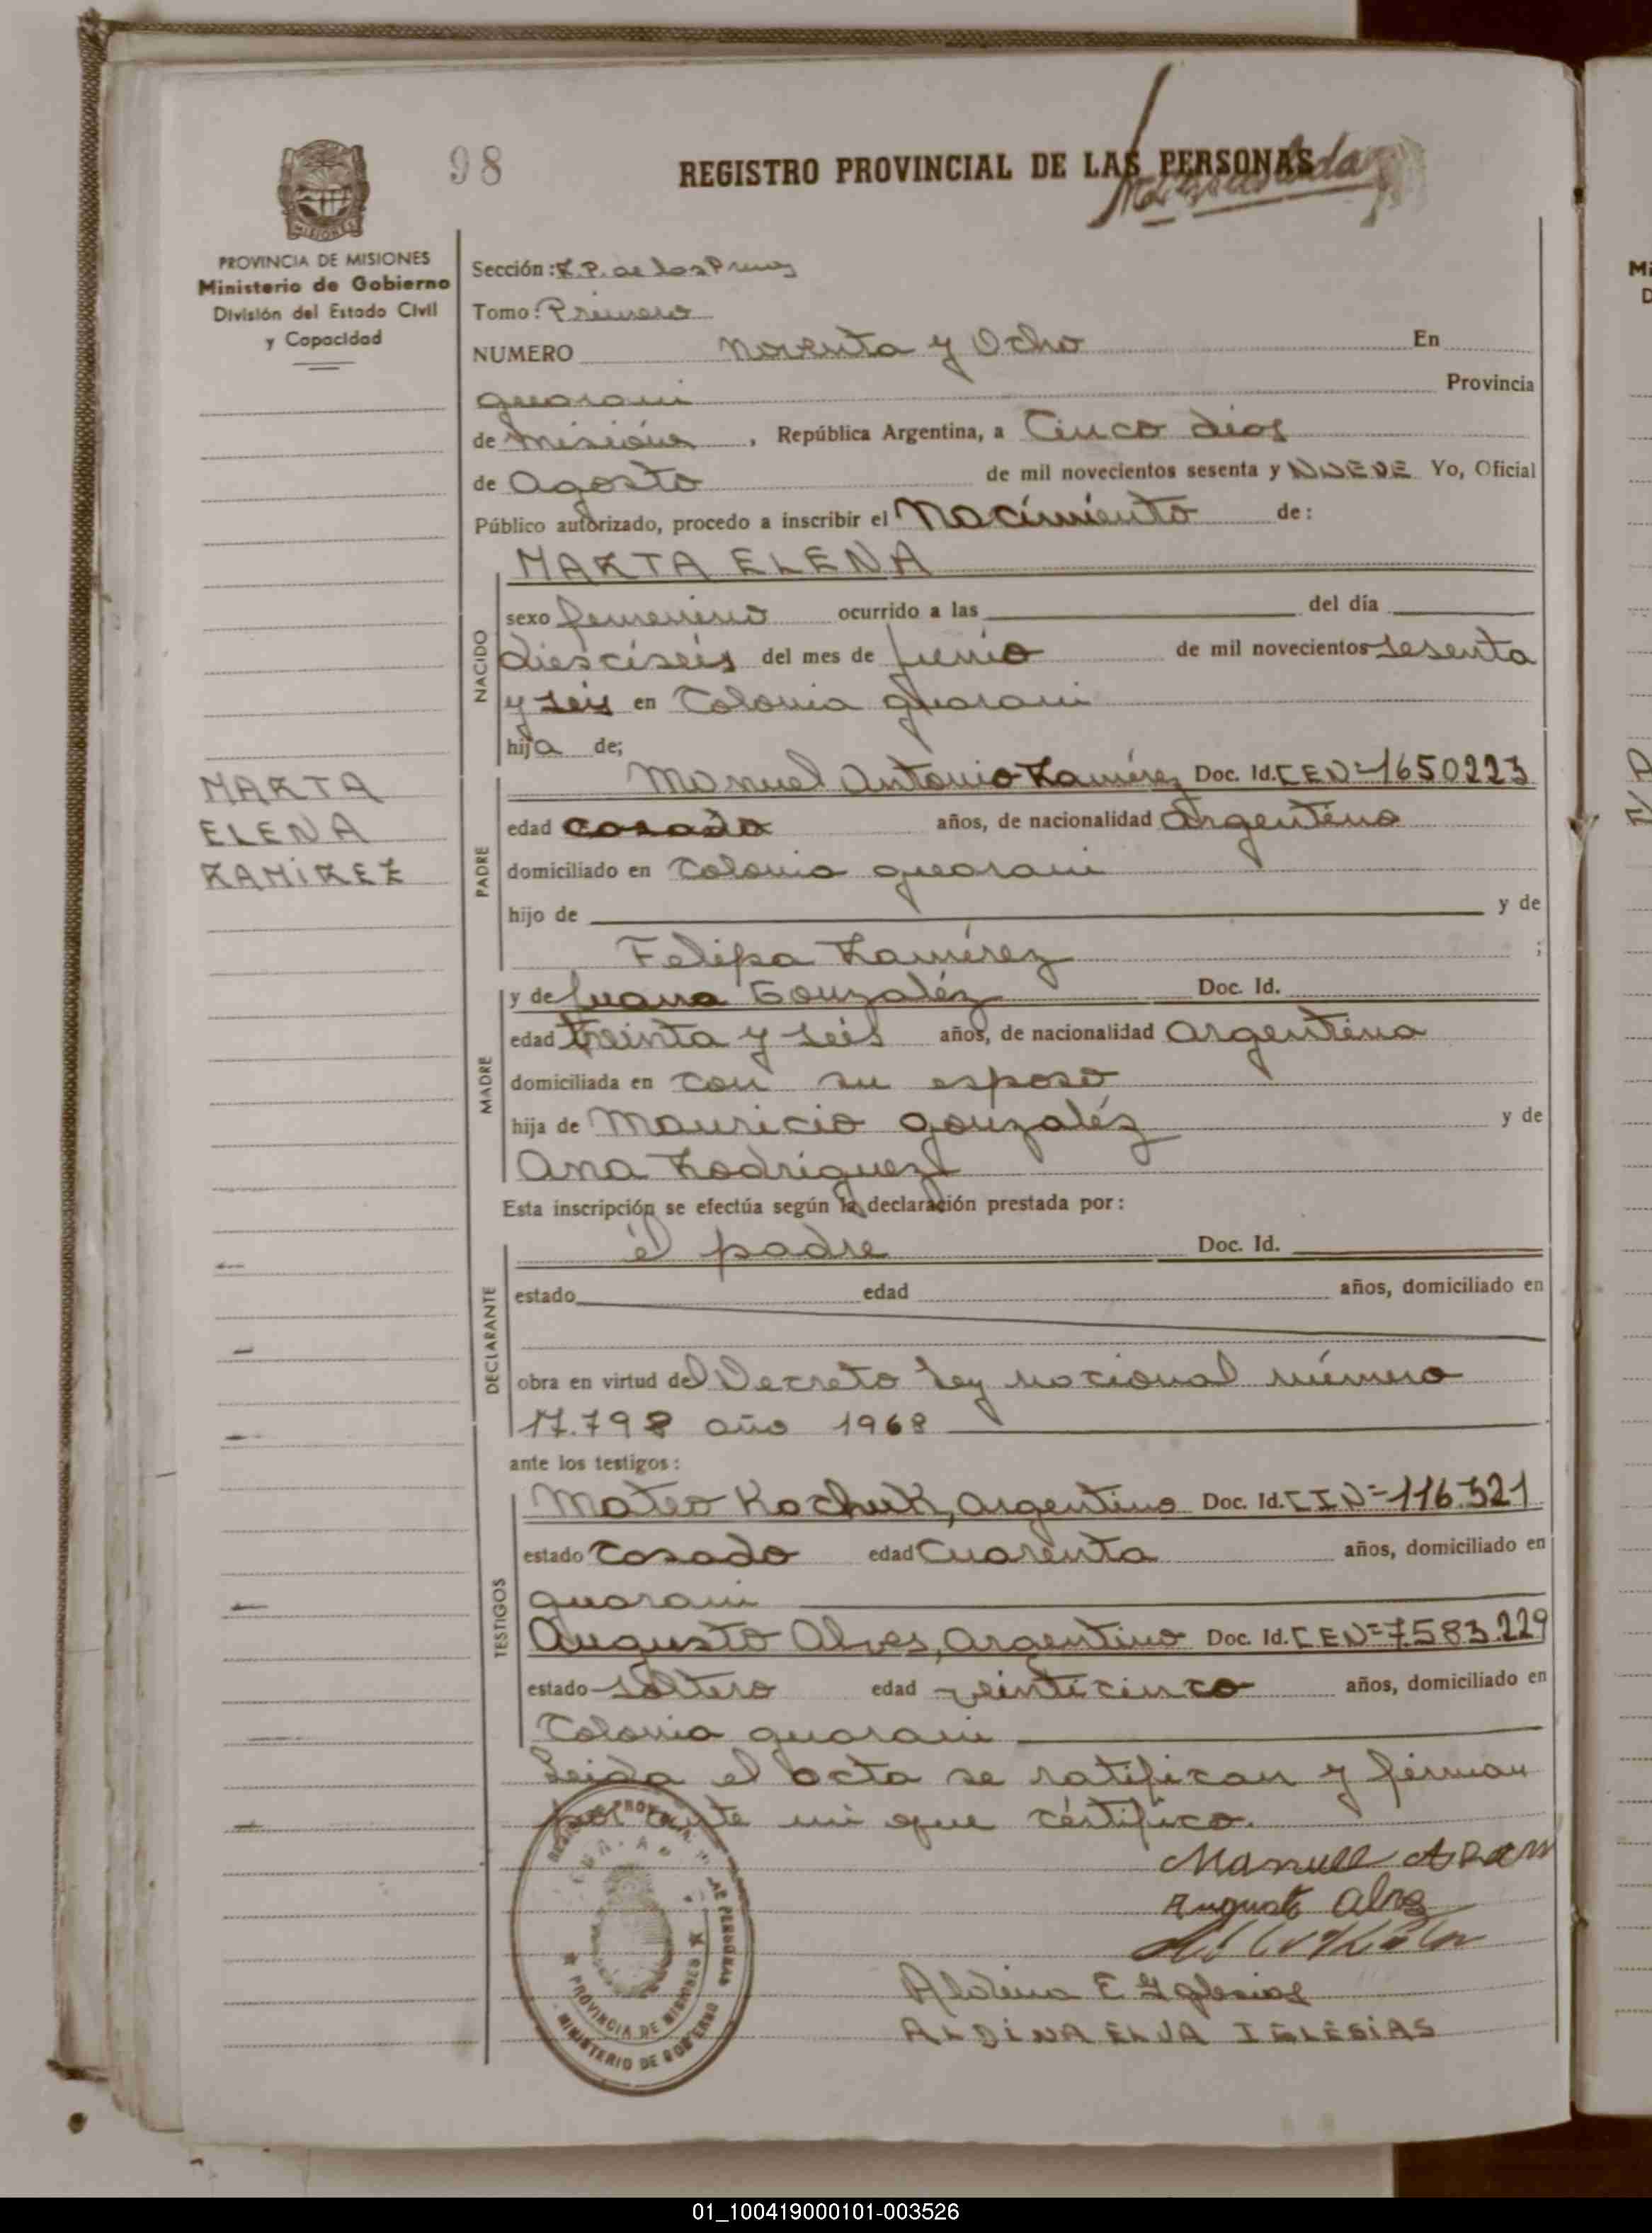 98
REGISTRO PROVINCIAL DE LAS PERSONAS
MISIONES
PROVINCIA DE MISIONES
Ministerio de Gobierno
División del Estado Civil
y Capacidad
Sección: R.P. de las
Tomo: Primero
NUMERO noventa y Ocho En
guarani Provincia
de misiones, República Argentina, a Cinco dias
de Agosto de mil novecientos sesenta y NUEVE Yo, Oficial
Público autorizado, procedo a inscribir el Nacimiento de:
MARTA ELENA
NACIDO
sexo femenino ocurrido a las del día
diesciseis del mes de junio de mil novecientos sesenta
y seis en Colonia guarani
hija de;
MARTA
ELENA
RAMÍREZ
PADRE
Manuel Antonio Ramírez Doc. Id. C E Nº 1650223
edad casado años, de nacionalidad Argentino
domiciliado en Colonia guarani
hijo de y de
Felipa Ramírez ;
MADRE
y de Juana Gonzaléz Doc. Id.
edad treinta y seis años, de nacionalidad argentina
domiciliada en con su esposo
hija de Mauricio gonzaléz y de
Ana Rodríguez
Esta inscripción se efectúa según la declaración prestada por:
DECLARANTE
él padre Doc. Id.
estado edad años, domiciliado en
obra en virtud del Decreto Ley nacional número
17.798 año 1968
ante los testigos:
TESTIGOS
Mateo Kochuk, argentino Doc. Id. C I Nº 116.321
estado Casado edad Cuarenta años, domiciliado en
guarani
Augusto Alves, argentino Doc. Id. C E Nº 7.583.229
estado soltero edad veinticinco años, domiciliado en
Colonia guarani
Leida el acta se ratifican y firman
por ante mi que certifico.
PROVINCIA DE MISIONES
MINISTERIO DE GOBIERNO
Manuel
Augusto Alves
Aldina E Iglesias
ALDINA ELVA IGLESIAS
01_100419000101-003526